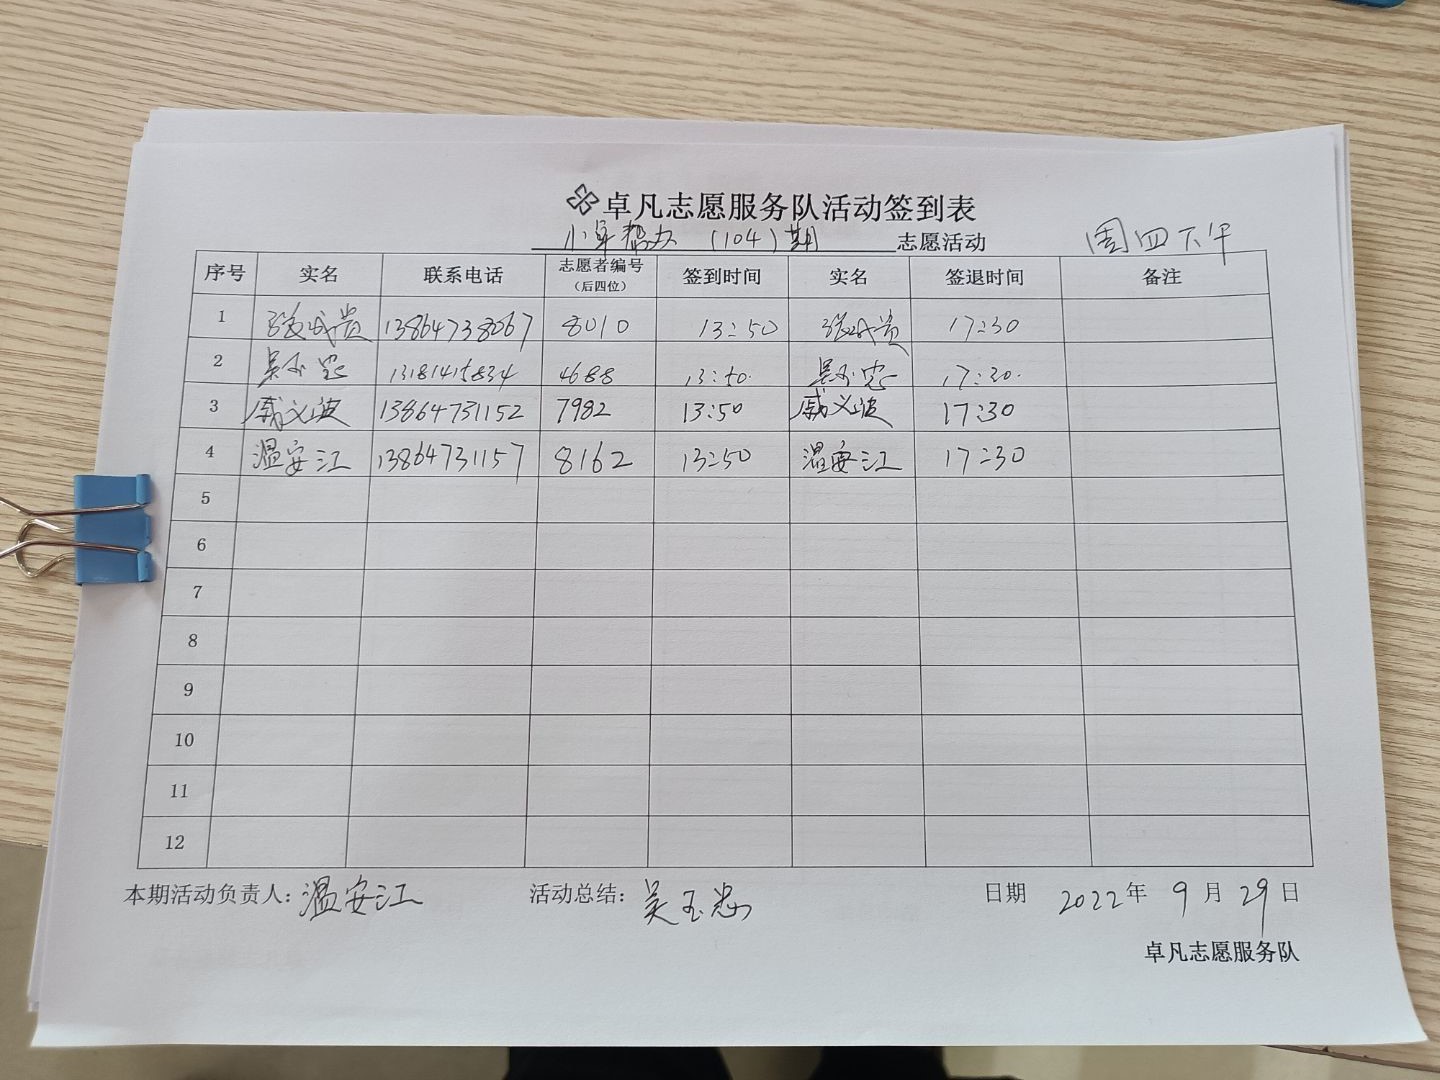 卓凡志愿服务队活动签到表
小草帮办 （104）期 志愿活动 周四下午
序号 实名 联系电话 志愿者编号（后四位） 签到时间 实名 签退时间 备注
1 张成贵 13864738067 8010 13:50 张成贵 17:30
2 吴玉忠 13181415834 4688 13:50 吴玉忠 17:30
3 戚义波 13864731152 7982 13:50 戚义波 17:30
4 温安江 13864731157 8162 13:50 温安江 17:30
5
6
7
8
9
10
11
12
本期活动负责人：温安江 活动总结：吴玉忠 日期 2022年9月29日
卓凡志愿服务队